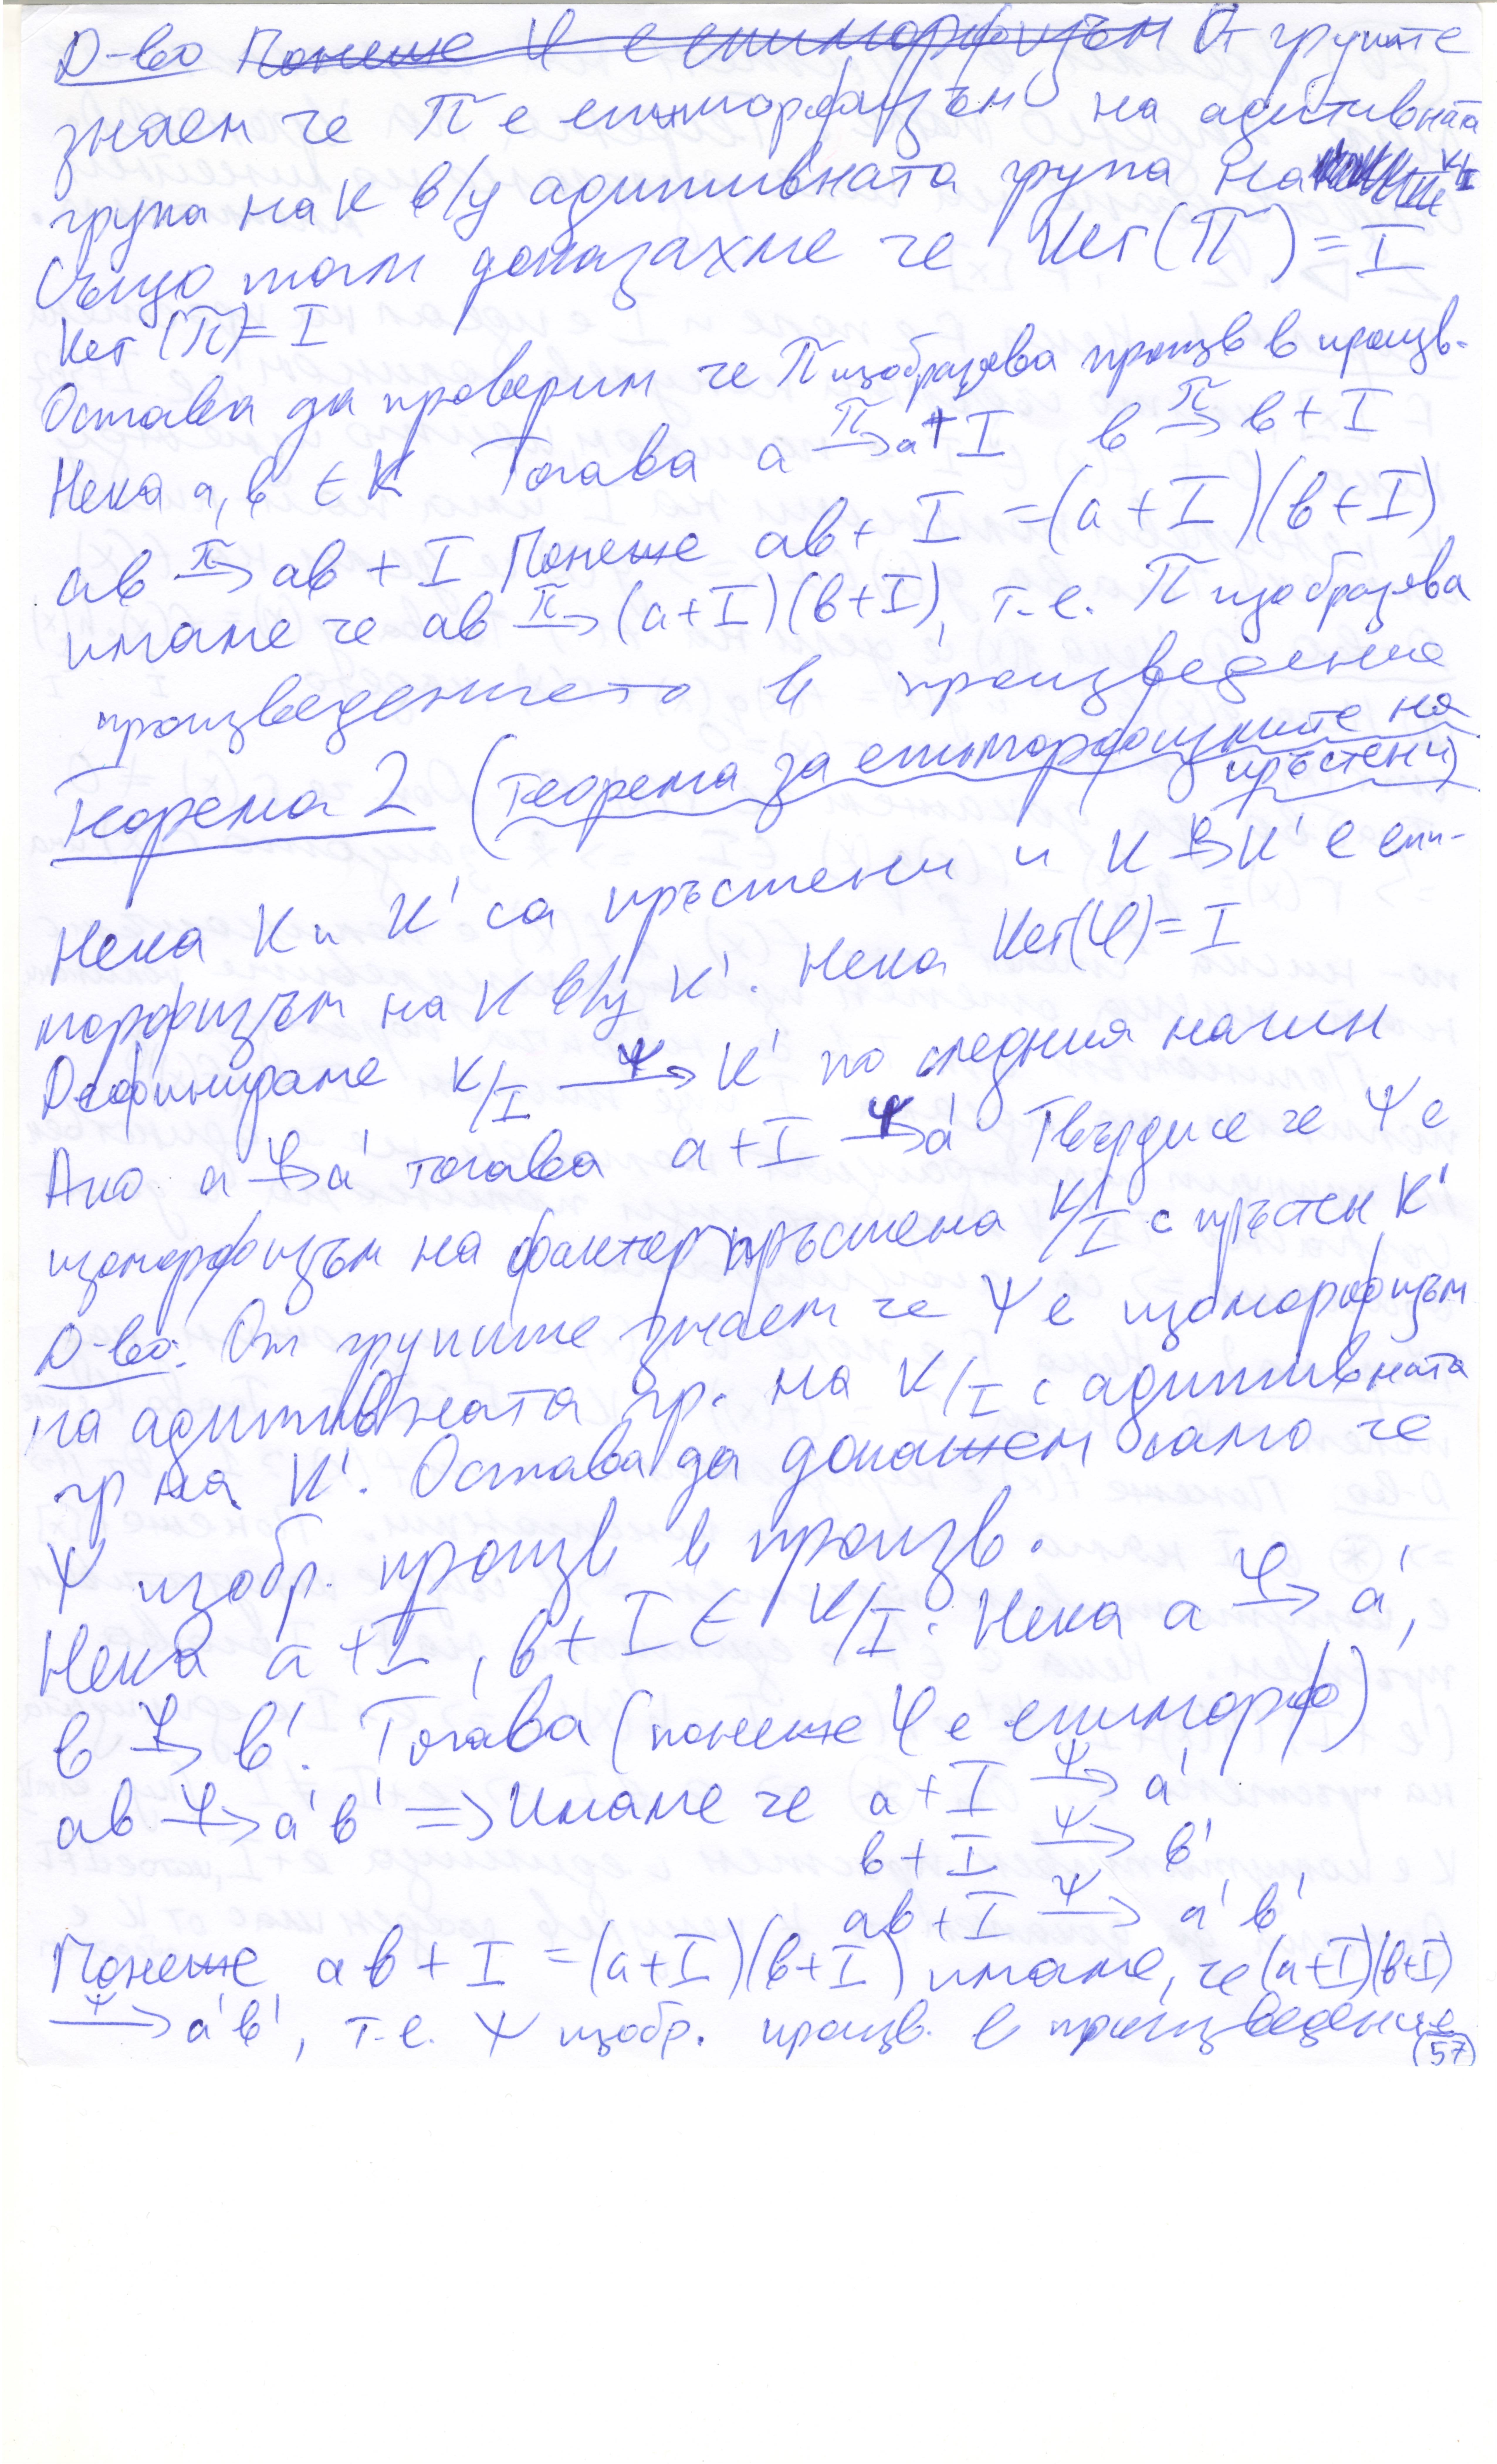 Д-во ~~Понеже φ е епиморфизъм~~ От групите
знаем че π е епиморфизъм на адитивната
група на K в/у адитивната група на K/I
Също там доказахме че Ker(π) = I
Ker(π) = I
Остава да проверим че π изобразява произв в произв.
Нека a, b ∈ K Тогава a →π a + I b →π b + I
ab →π ab + I Понеже ab + I = (a + I)(b + I)
имаме че ab →π (a + I)(b + I), т.е. π изобразява
произведението в произведение
Теорема 2 (теорема за епиморфизмите на
пръстени)
Нека K и K' са пръстени и K →φ K' е епи-
морфизъм на K в/у K'. Нека Ker(φ) = I
Дефинираме K/I →ψ K' по следния начин
Ако a →φ a' тогава a + I →ψ a' Твърди се че ψ е
изоморфизъм на факторпръстена K/I с пръстен K'
Д-во: От групите знаем че ψ е изоморфизъм
на адитивната гр. на K/I с адитивната
гр на K'. Остава да докажем само че
ψ изобр. произв в произв.
Нека a + I, b + I ∈ K/I. Нека a →φ a',
b →φ b'. Тогава (понеже φ е епиморф)
ab →φ a'b' => Имаме че a + I →ψ a'
b + I →ψ b'
ab + I →ψ a'b'
Понеже ab + I = (a + I)(b + I) имаме, че (a + I)(b + I)
→ψ a'b', т.е. ψ изобр. произв. в произведение
(57)